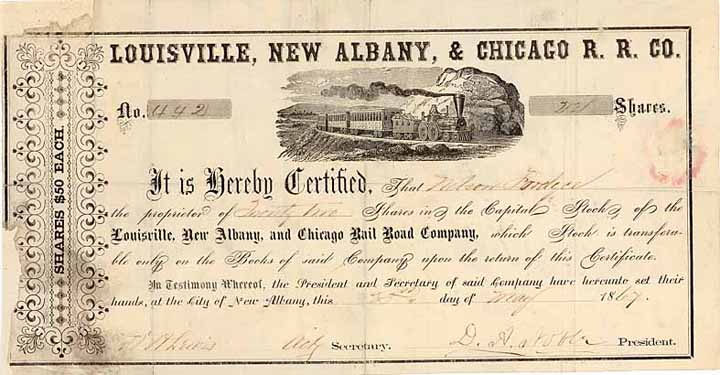 LOUISVILLE, NEW ALBANY, & CHICAGO R. R. CO.
No. 442 Shares.
SHARES $50 EACH.
It is Hereby Certified, That Nelson
the proprietor of Twenty two Shares in the Capital Stock of the
Louisville, New Albany, and Chicago Rail Road Company, which Stock is transfera-
ble only on the Books of said Company upon the return of this Certificate.
In Testimony Whereof, the President and Secretary of said Company have hereunto set their
hands, at the City of New Albany, this day of May 1867.
Secretary. President.